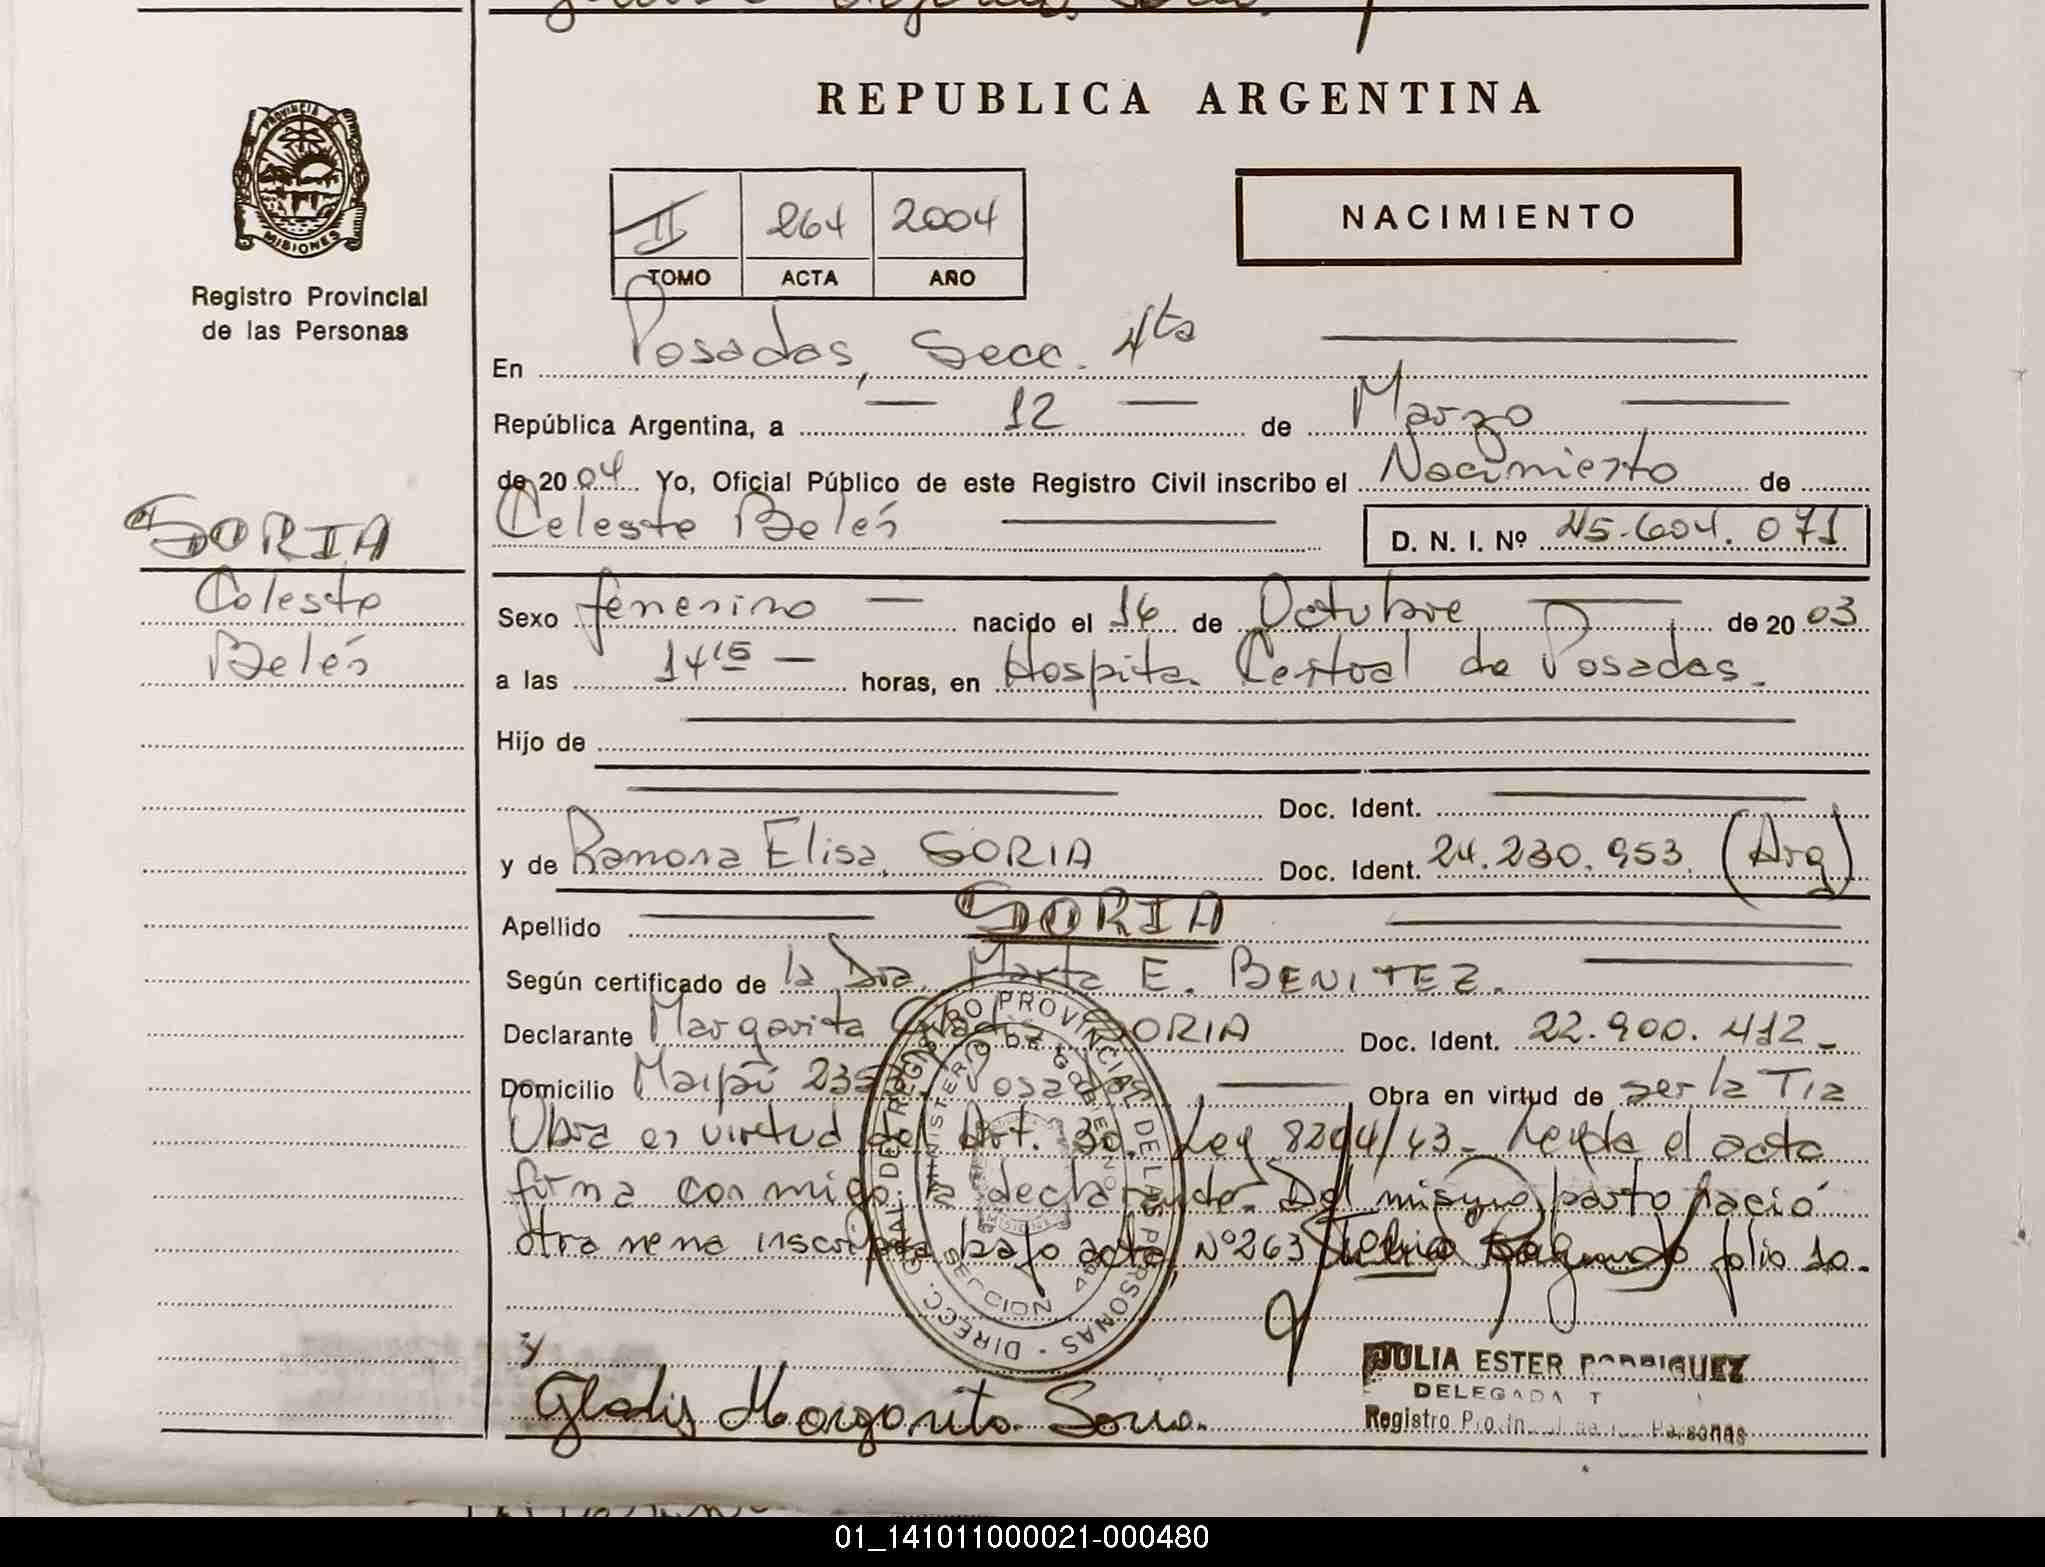 REPUBLICA ARGENTINA
PROVINCIA DE
MISIONES
Registro Provincial
de las Personas
II 264 2004
TOMO ACTA AÑO
NACIMIENTO
En Posadas, Secc. 4ta
República Argentina, a 12 de Marzo
de 2004 Yo, Oficial Público de este Registro Civil inscribo el Nacimiento de
Celeste Belén D. N. I. Nº 45.604.071
SORIA
Celeste
Belén
Sexo femenino nacido el 16 de Octubre de 2003
a las 14 15 horas, en Hospital Central de Posadas.
Hijo de
Doc. Ident.
y de Ramona Elisa SORIA Doc. Ident. 24.230.953 (Arg)
Apellido SORIA
Según certificado de la Dra Marta E. BENITEZ.
Declarante Margarita SORIA Doc. Ident. 22.900.412
Domicilio Maipú Posadas Obra en virtud de ser la Tia
Obra en virtud del Art. 30. Ley 8204/63 - Leyda el acta
firma conmigo la declarante. Del mismo parto nació
otra nena inscripta bajo acta Nº 263 folio 10.
DIRECC. GRAL. DE REGISTRO PROVINCIAL DE LAS PERSONAS
MINISTERIO DE GOBIERNO
SECCION 4a
Gladis Margarita Soria
JULIA ESTER RODRIGUEZ
DELEGADA
Registro Personas
01_141011000021-000480